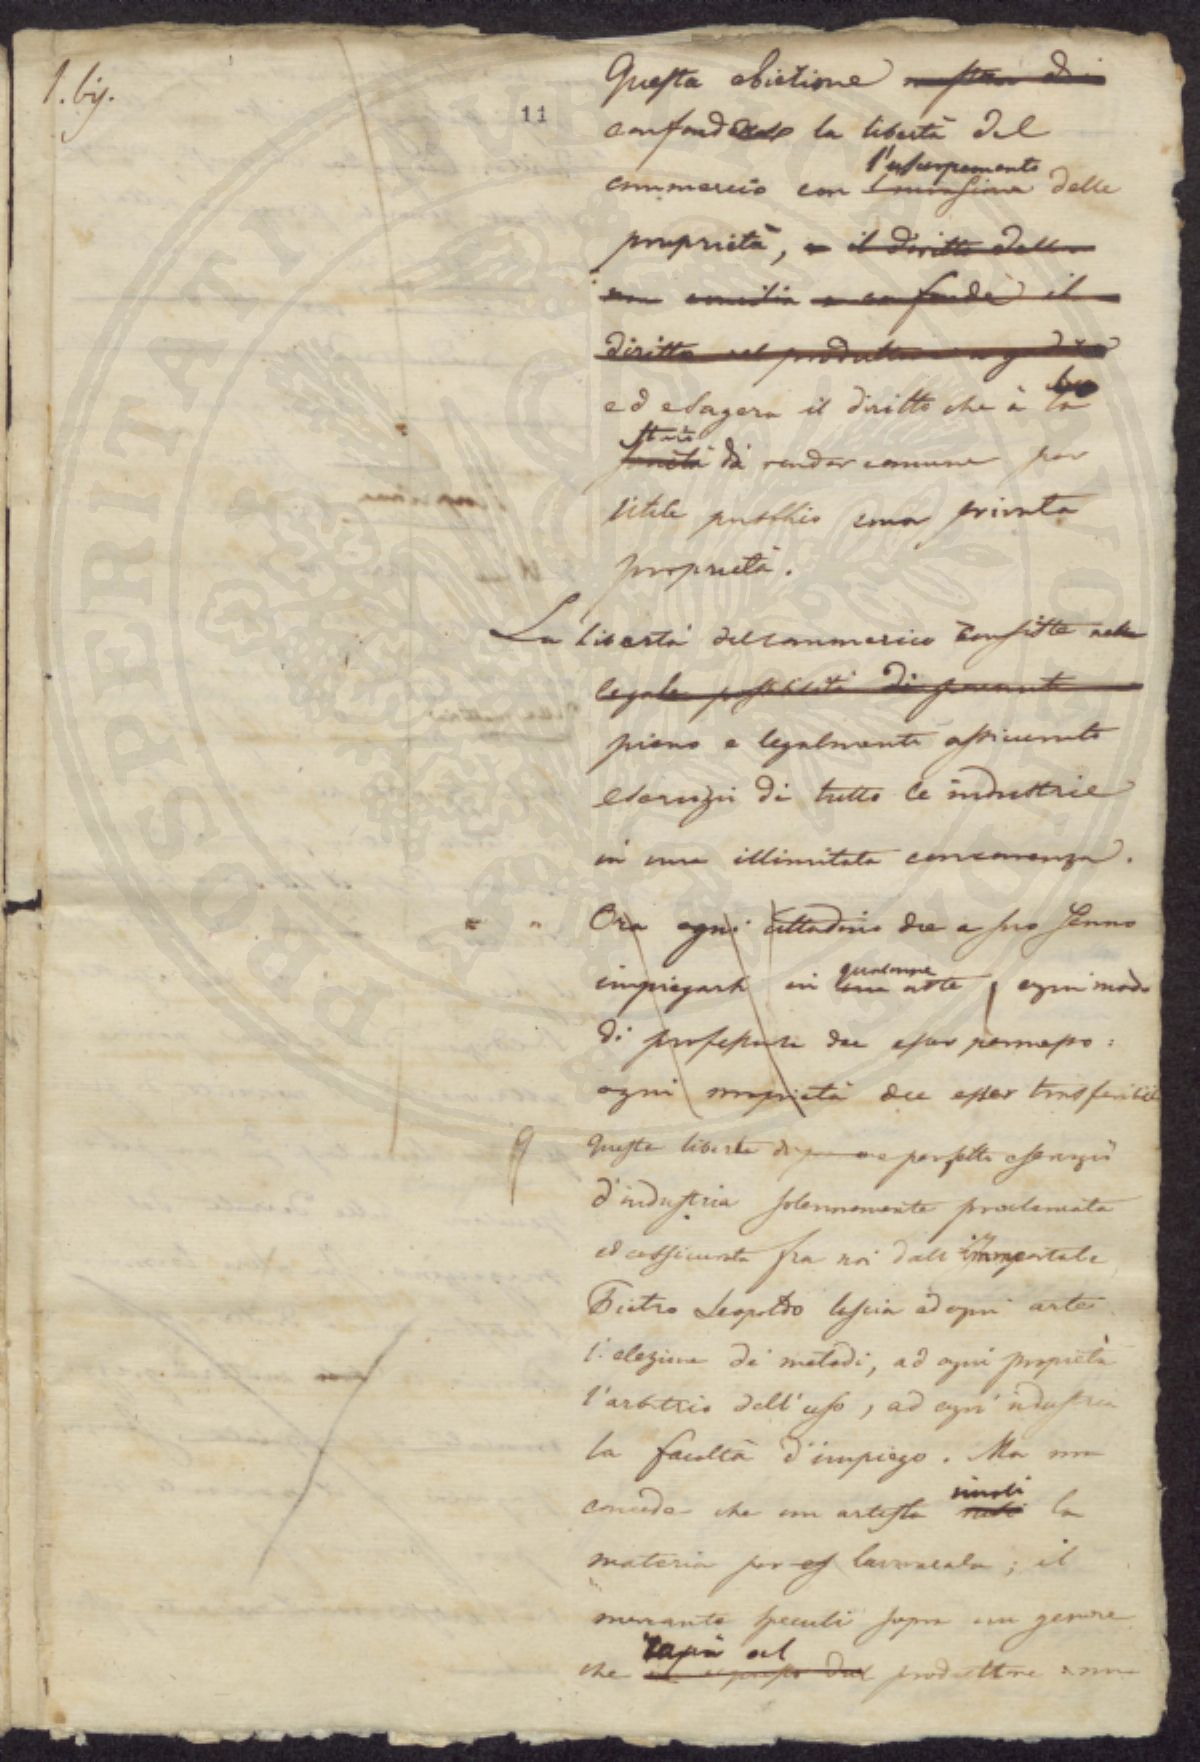 1. bis.
11
Questa obietione
confonde la libertà del
l'usurpamento
commercio con l'invasione delle
proprietà, e il diritto della
non concilia e confonde il
diritto nel produttore a
ed esagera il diritto che à lo
stato
società di render comune per
utile pubblico una privata
proprietà.
La libertà del commercio consiste nella
legale possibilità di
pieno e legalmente assicurato
esercizio di tutte le industrie
in una illimitata concorrenza.
Ora ogni cittadino dee a suo senno
qualunque
impiegarsi in una arte, ogni modo
di professare dee esser permesso:
ogni proprietà dee esser trasferibile
Questa libertà di perfetto esercizio
d'industria solennemente proclamata
ed assicurata fra noi dall'immortale
Pietro Leopoldo lascia ad ogni arte
l'elezione dei metodi, ad ogni proprietà
l'arbitrio dell'uso, ad ogni industria
la facoltà d'impiego. Ma non
involi
concede che un artista rubi la
materia per lavorarla; il
mercante speculi sopra un genere
rapia al
che dal produttore
PROSPERITATI PUBLICAE